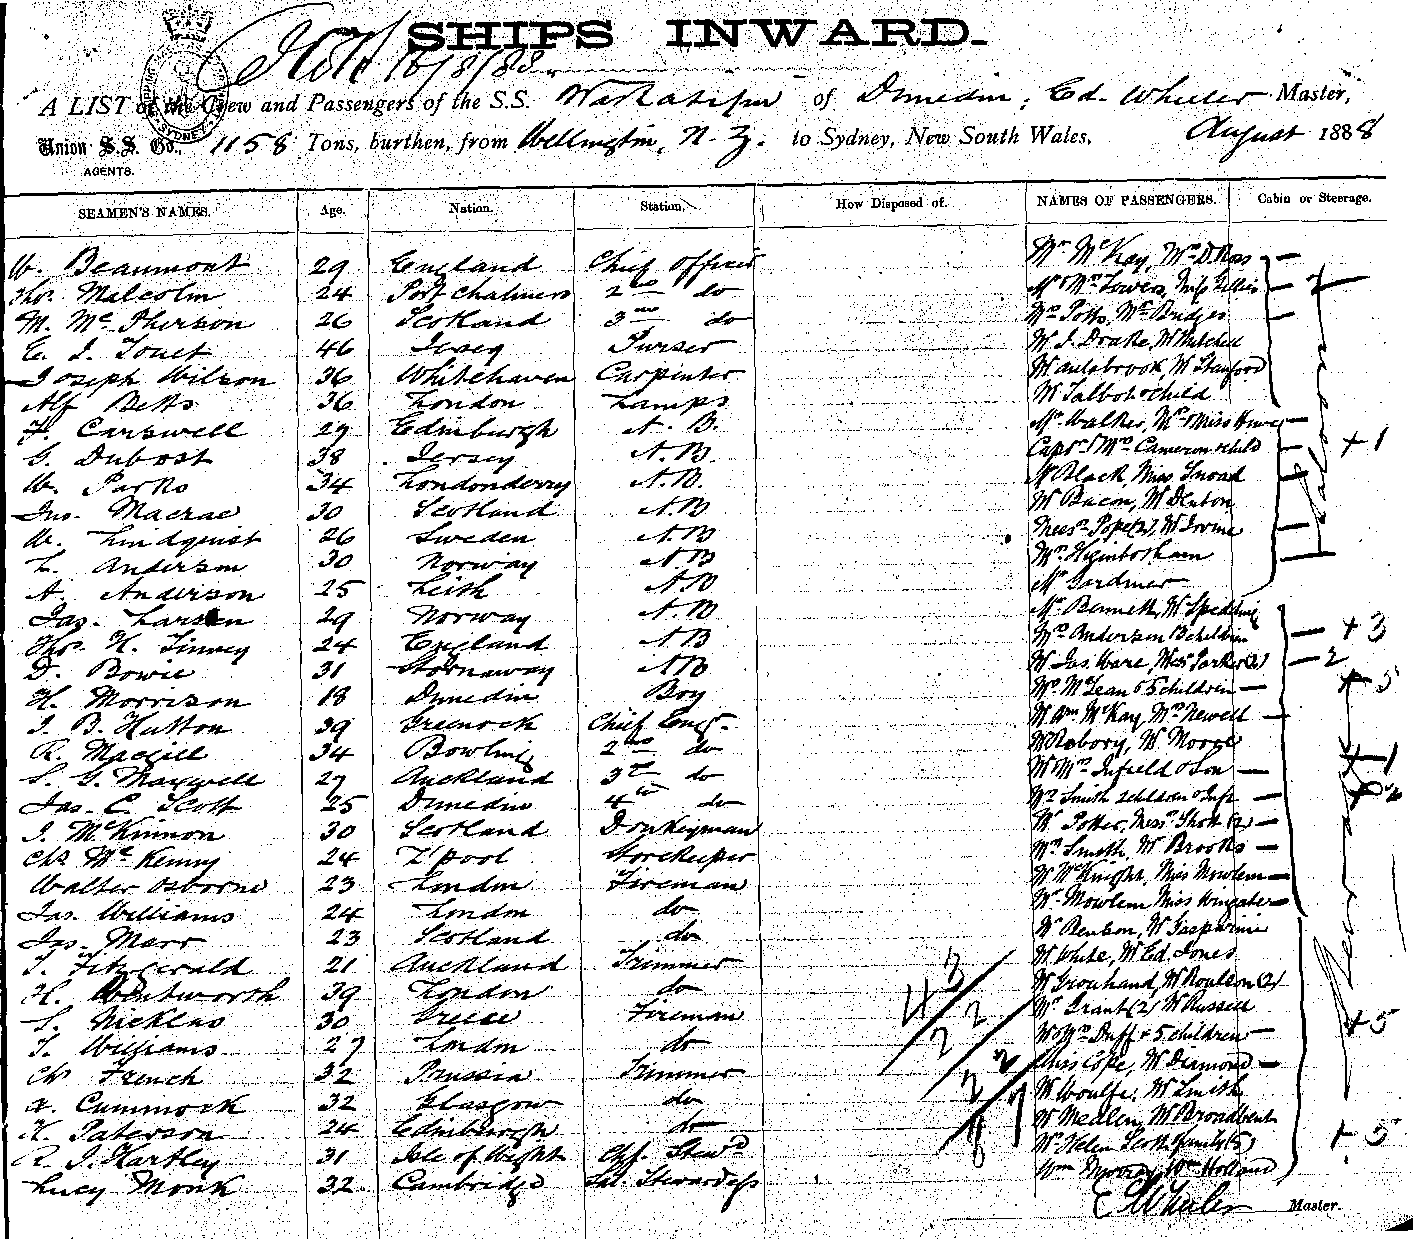 SHIPS INWARD.
16/8/88
A LIST of the Crew and Passengers of the S.S. Wakatipu of Dunedin, Ed. Wheeler Master,
Union S.S. Co., 1158 Tons, burthen, from Wellington, N. Z. to Sydney, New South Wales, August 1888
AGENTS.
SEAMEN'S NAMES. Age. Nation. Station. How Disposed of. NAMES OF PASSENGERS. Cabin or Steerage.
W. Beaumont 29 England Chief Officer Mr McKay, Mrs D Ross
Thos. Malcolm 24 Port Chalmers 2nd do Mr & Mrs Towers, Miss Gillies
M. McPherson 26 Scotland 3rd do Mrs Potts, Mr Bridges
E. J. Touet 46 Jersey Purser Mr J. Drake, Mr Mitchell
Joseph Wilson 36 Whitehaven Carpenter Mr Stanford
Alf Betts 36 London Lamps Mr Talbot & child
F. Carswell 29 Edinburgh A. B. Mr Walker, Mrs & Miss
G. Dubost 38 Jersey A. B. Capt & Mrs Cameron & child
W. Parks 34 Londonderry A. B. Mr Black, Miss
Jno. Macrae 30 Scotland A. B Mr Bacon, Mr Denton
W. Lindquist 26 Sweden A. B Messrs Pope (2), Mr Irvine
L. Anderson 30 Norway A. B Mr Higinbotham
A. Anderson 25 Leith A. B Mr Gardiner
Jas. Larsen 29 Norway A. B Mr Bennett, Mr Spedding
Thos. H. Tinney 24 England A B Mrs Anderson 3 children + 3
D. Bowie 31 Stornaway A B Mr Jas. Ware, Messrs Parker (2) 2
H. Morrison 18 Dunedin Boy Mrs McLean & 5 children + 5
J. B. Hutton 39 Greenock Chief Engr. Mr Wm McKay, Mrs Newell
R. Macgill 34 Bowling 2nd do Mr Moore
S. G. Maxwell 27 Auckland 3rd do Mr Mrs Infield & Son + 1
Jas. C. Scott 25 Dunedin 4th do Mrs Smith 2 children & Inft
J. McKinnon 30 Scotland Donkeyman Mr Potter, Messrs Shott (2)
Chs McKenny 24 L'pool Storekeeper Mrs Smith, Mr Brooks
Walter Osborne 23 London Fireman Mr McKnight, Miss Mowlem
Jas. Williams 24 London do Mr Mowlem Miss Wingate
Jas. Marr 23 Scotland do Mr Benson, Mr Gasparini
T. Fitzgerald 21 Auckland Trimmer Mr White, Mr Ed Jones
H. Wentworth 39 London do Mr Roulson (2)
S. Nicklas 30 Greece Fireman Mr Grant (2) Mr Russell
T. Williams 27 London do Mr Mrs Duff & 5 children + 5
Chs French 32 Prussia Trimmer Miss Cope, Mr Diamond
A. Cummock 32 Glasgow do Mr Woulfe, Mr Smith
K. Paterson 24 Edinburgh do Mr Medlen, Mr Broadbent
R. J. Hartley 31 Isle of Wight Chf. Stewd Mrs Helen Scott family (5) + 5
Lucy Monk 32 Cambridge Sal. Stewardess Wm Murray, Wm Holland
E Wheeler Master.